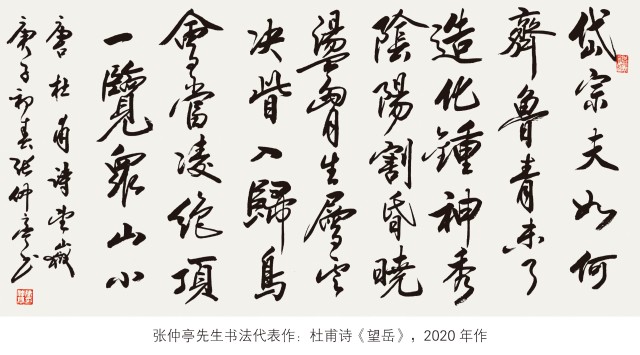 岱宗夫如何
齊魯青未了
造化鍾神秀
陰陽割昏曉
盪胷生層云
决眥入歸鳥
會當凌絶頂
一覽眾山小
唐杜甫詩望嶽
庚子初春張仲亭书
张仲亭先生书法代表作：杜甫诗《望岳》，2020年作